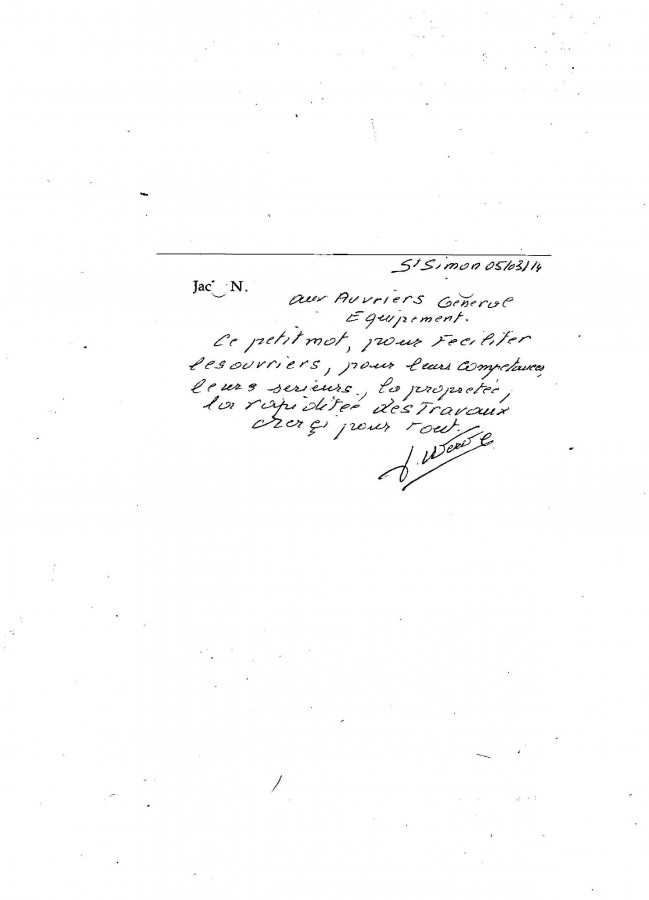 St Simon 05/03/14
Jac N.
aux Auvriers Génerale
Equipement.
Ce petit mot, pour Feciliter
les ouvriers, pour leurs competances,
leurs serieurs, la propretée,
la rapiditée des Travaux
merçi pour Tout.